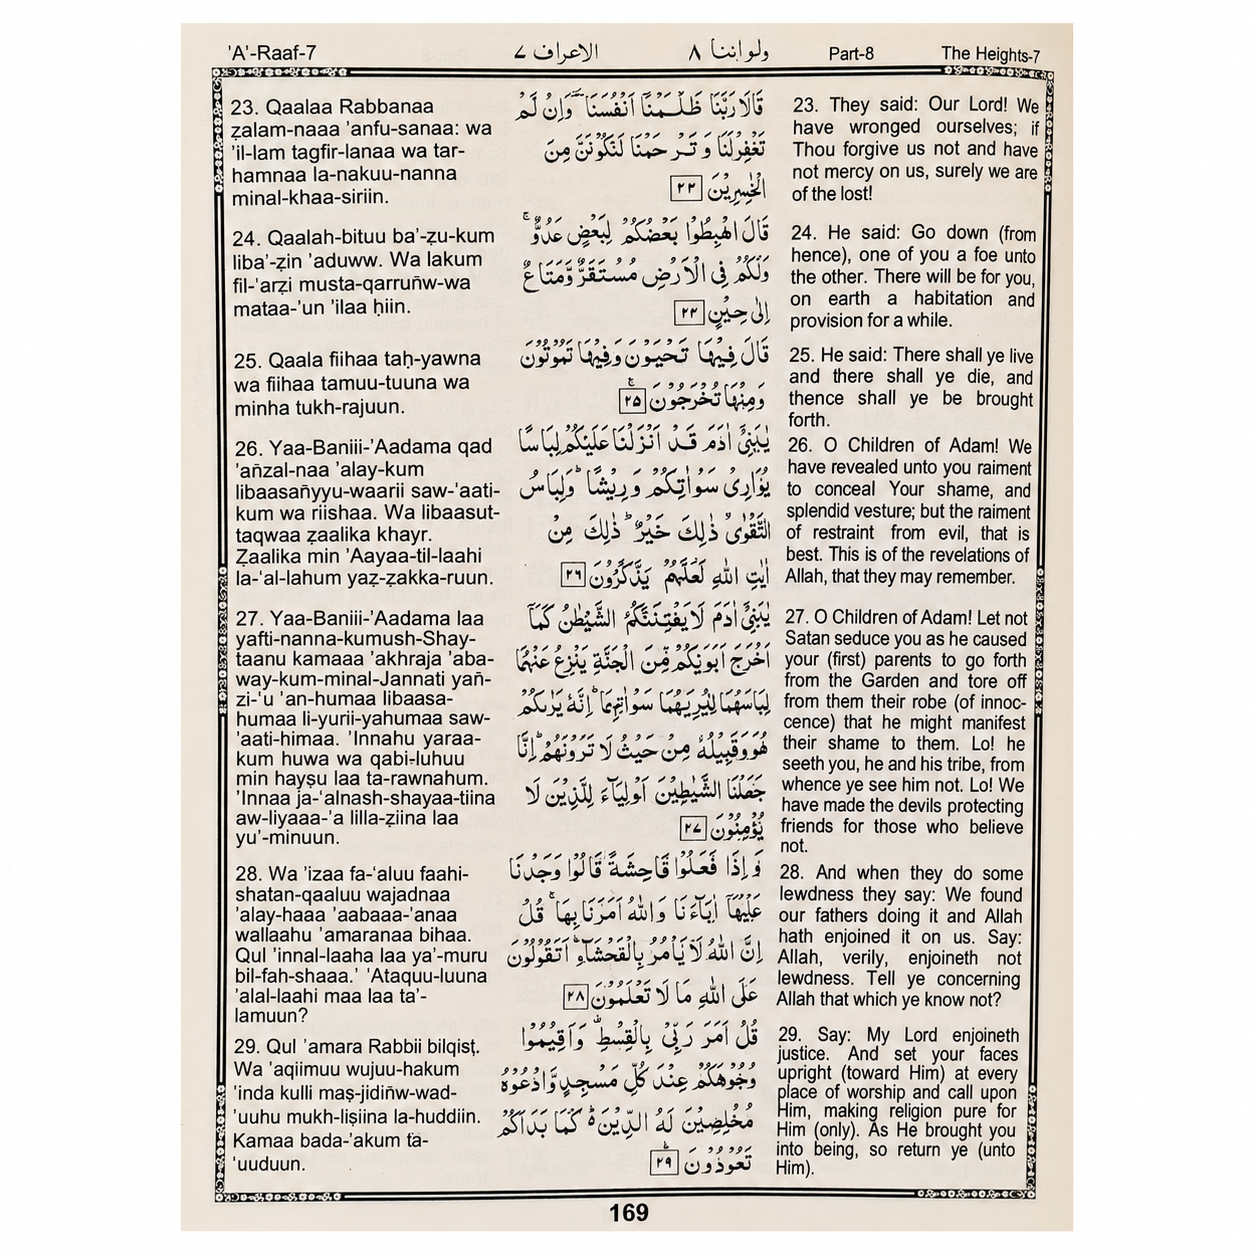 'A'-Raaf-7
الاعراف ٧
ولواننا ٨
Part-8
The Heights-7
23. Qaalaa Rabbanaa
ẓalam-naaa 'anfu-sanaa: wa
'il-lam tagfir-lanaa wa tar-
hamnaa la-nakuu-nanna
minal-khaa-siriin.
24. Qaalah-bituu ba'-ẓu-kum
liba'-ẓin 'aduww. Wa lakum
fil-'arẓi musta-qarruñw-wa
mataa-'un 'ilaa ḥiin.
25. Qaala fiihaa taḥ-yawna
wa fiihaa tamuu-tuuna wa
minha tukh-rajuun.
26. Yaa-Baniii-'Aadama qad
'añzal-naa 'alay-kum
libaasañyyu-waarii saw-'aati-
kum wa riishaa. Wa libaasut-
taqwaa ẓaalika khayr.
Ẓaalika min 'Aayaa-til-laahi
la-'al-lahum yaẓ-ẓakka-ruun.
27. Yaa-Baniii-'Aadama laa
yafti-nanna-kumush-Shay-
taanu kamaaa 'akhraja 'aba-
way-kum-minal-Jannati yañ-
zi-'u 'an-humaa libaasa-
humaa li-yurii-yahumaa saw-
'aati-himaa. 'Innahu yaraa-
kum huwa wa qabi-luhuu
min hayṣu laa ta-rawnahum.
'Innaa ja-'alnash-shayaa-tiina
aw-liyaaa-'a lilla-ẓiina laa
yu'-minuun.
28. Wa 'izaa fa-'aluu faahi-
shatan-qaaluu wajadnaa
'alay-haaa 'aabaaa-'anaa
wallaahu 'amaranaa bihaa.
Qul 'innal-laaha laa ya'-muru
bil-fah-shaaa.' 'Ataquu-luuna
'alal-laahi maa laa ta'-
lamuun?
29. Qul 'amara Rabbii bilqisṭ.
Wa 'aqiimuu wujuu-hakum
'inda kulli maṣ-jidiñw-wad-
'uuhu mukh-liṣiina la-huddiin.
Kamaa bada-'akum ta-
'uuduun.
قَالَا رَبَّنَا ظَلَمْنَا اَنْفُسَنَا وَاِنْ لَّمْ
تَغْفِرْلَنَا وَ تَرْحَمْنَا لَنَكُوْنَنَّ مِنَ
الْخٰسِرِيْنَ
قَالَ اهْبِطُوْا بَعْضُكُمْ لِبَعْضٍ عَدُوٌّ ۚ
وَلَكُمْ فِى الْاَرْضِ مُسْتَقَرٌّ وَّمَتَاعٌ
اِلٰى حِيْنٍ
قَالَ فِيْهَا تَحْيَوْنَ وَفِيْهَا تَمُوْتُوْنَ
وَمِنْهَا تُخْرَجُوْنَ ٢٥
يٰبَنِىْٓ اٰدَمَ قَدْ اَنْزَلْنَا عَلَيْكُمْ لِبَاسًا
يُّوَارِىْ سَوْاٰتِكُمْ وَ رِيْشًا ؕ وَلِبَاسُ
التَّقْوٰى ذٰلِكَ خَيْرٌ ؕ ذٰلِكَ مِنْ
اٰيٰتِ اللّٰهِ لَعَلَّهُمْ يَذَّكَّرُوْنَ ٢٦
يٰبَنِىْٓ اٰدَمَ لَا يَفْتِنَنَّكُمُ الشَّيْطٰنُ كَمَآ
اَخْرَجَ اَبَوَيْكُمْ مِّنَ الْجَنَّةِ يَنْزِعُ عَنْهُمَا
لِبَاسَهُمَا لِيُرِيَهُمَا سَوْاٰتِهِمَا ؕ اِنَّهٗ يَرٰىكُمْ
هُوَ وَقَبِيْلُهٗ مِنْ حَيْثُ لَا تَرَوْنَهُمْ ؕ اِنَّا
جَعَلْنَا الشَّيٰطِيْنَ اَوْلِيَآءَ لِلَّذِيْنَ لَا
يُؤْمِنُوْنَ ٢٧
وَ اِذَا فَعَلُوْا فَاحِشَةً قَالُوْا وَجَدْنَا
عَلَيْهَآ اٰبَآءَنَا وَاللّٰهُ اَمَرَنَا بِهَا ۚ قُلْ
اِنَّ اللّٰهَ لَا يَاْمُرُ بِالْفَحْشَآءِ ؕ اَتَقُوْلُوْنَ
عَلَى اللّٰهِ مَا لَا تَعْلَمُوْنَ ٢٨
قُلْ اَمَرَ رَبِّىْ بِالْقِسْطِ ۫ وَاَقِيْمُوْا
وُجُوْهَكُمْ عِنْدَ كُلِّ مَسْجِدٍ وَّادْعُوْهُ
مُخْلِصِيْنَ لَهُ الدِّيْنَ ؕ كَمَا بَدَاَكُمْ
تَعُوْدُوْنَ ٢٩
23. They said: Our Lord! We
have wronged ourselves; if
Thou forgive us not and have
not mercy on us, surely we are
of the lost!
24. He said: Go down (from
hence), one of you a foe unto
the other. There will be for you,
on earth a habitation and
provision for a while.
25. He said: There shall ye live
and there shall ye die, and
thence shall ye be brought
forth.
26. O Children of Adam! We
have revealed unto you raiment
to conceal Your shame, and
splendid vesture; but the raiment
of restraint from evil, that is
best. This is of the revelations of
Allah, that they may remember.
27. O Children of Adam! Let not
Satan seduce you as he caused
your (first) parents to go forth
from the Garden and tore off
from them their robe (of innoc-
cence) that he might manifest
their shame to them. Lo! he
seeth you, he and his tribe, from
whence ye see him not. Lo! We
have made the devils protecting
friends for those who believe
not.
28. And when they do some
lewdness they say: We found
our fathers doing it and Allah
hath enjoined it on us. Say:
Allah, verily, enjoineth not
lewdness. Tell ye concerning
Allah that which ye know not?
29. Say: My Lord enjoineth
justice. And set your faces
upright (toward Him) at every
place of worship and call upon
Him, making religion pure for
Him (only). As He brought you
into being, so return ye (unto
Him).
169